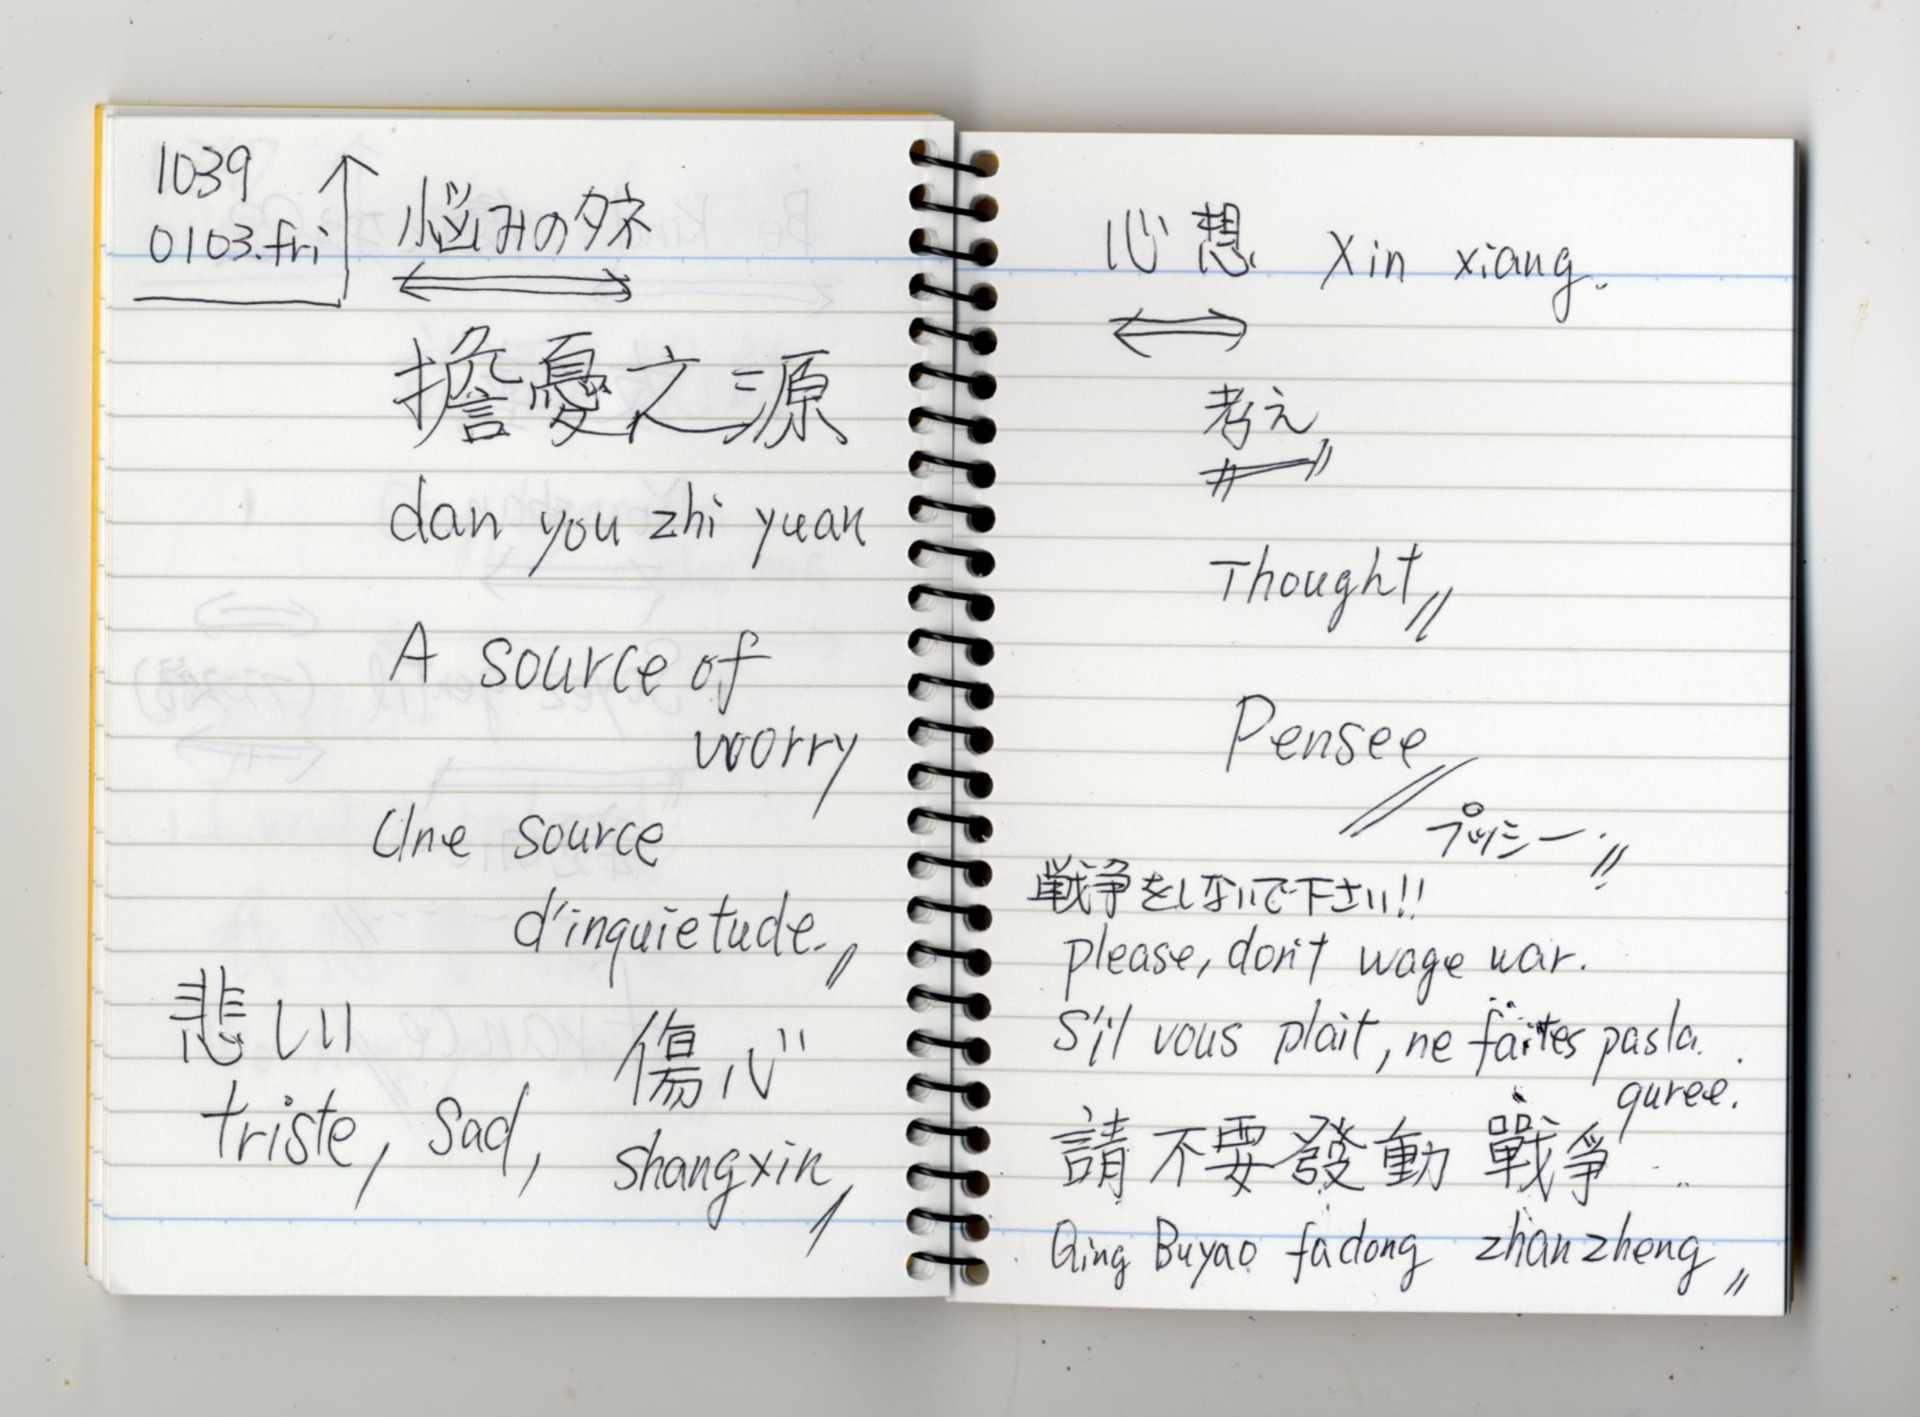 1039
0103.fri
悩みのタネ
擔憂之源
dan you zhi yuan
A source of
worry
Une source
d'inquietude.
悲しい
傷心
triste, sad,
shangxin
心想 Xin xiang.
考え
Thought
Pensee
プッシー
戦争をしないで下さい!!
please, don't wage war.
S'il vous plait, ne faites pas la
guree.
請不要發動戰爭
Qing Buyao fadong zhanzheng